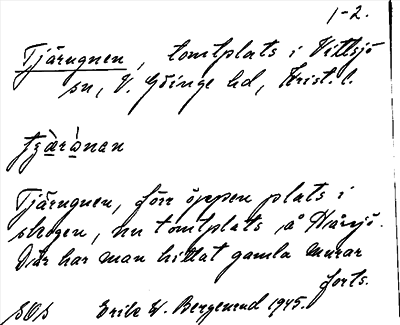 1-2.
Tjärugnen, tomtplats i Vittsjö
sn, V. Göinge hd, Krist. l.
Tjärugnen, förr öppen plats i
skogen, nu tomtplats å Hårsjö.
Där har man hittat gamla murar
forts.
SOs Erik W. Bergenend 1945.